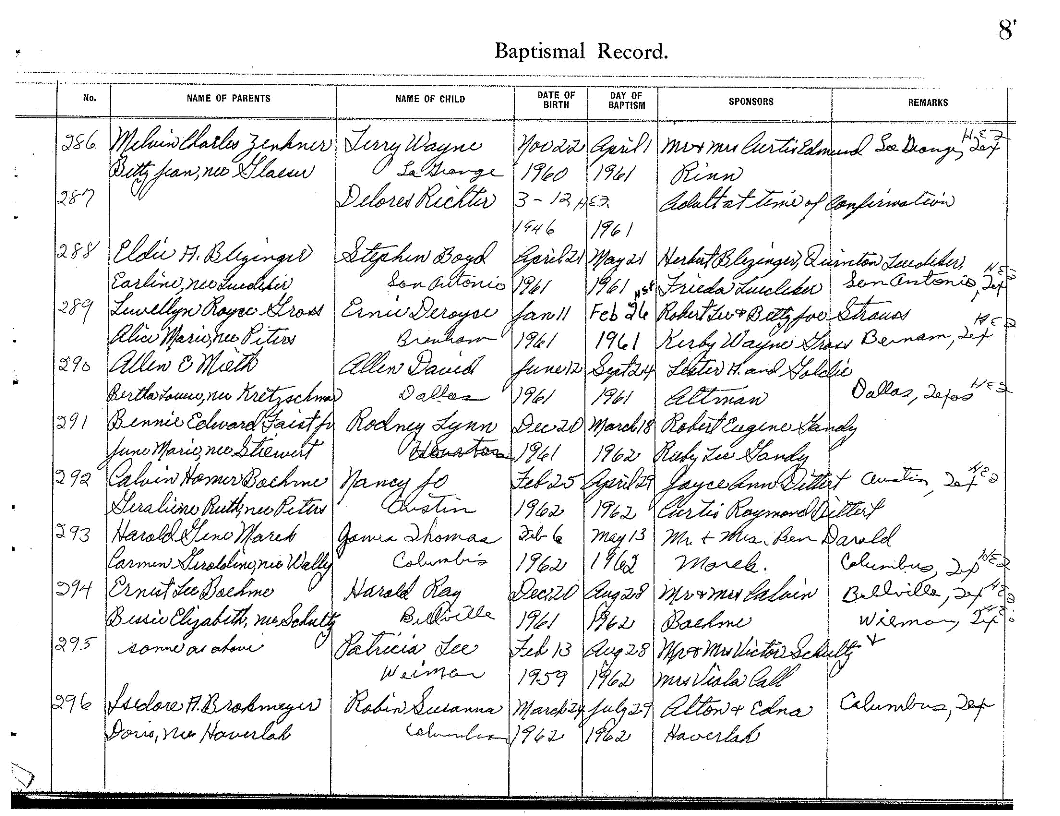 8
Baptismal Record.
No. NAME OF PARENTS NAME OF CHILD DATE OF BIRTH DAY OF BAPTISM SPONSORS REMARKS
286 Melvin Charles Zenkner Terry Wayne Nov 22 April 1 Mr & Mrs Curtis Edmund La Grange, Tex HEZ
Betty Jean, nee Glaeser La Grange 1960 1961 Rinn
287 Delores Richter 3-12 HEZ Adult at time of Confirmation
1946 1961
288 Eldie A. Blezinger Stephen Boyd April 21 May 21 Herbert Blezinger, Quinton Luedeker,
Earline, nee Luedeker San Antonio 1961 1961 Frieda Luedeker San Antonio, Tex HEZ
289 Lewellyn Royce Gross Ernie Deroyce Jan 11 Feb 26 Robert Lee & Betty Joe Strauss
Alice Marie, nee Peters Brenham 1961 1961 Kerby Wayne Gross Bernam, Tex HEZ
290 Allen E Mieth Allen David June 12 Sept 24 Lester H. and Goldie
Bertha Louise, nee Kretzschmar Dallas 1961 1961 Altman Dallas, Texas HEZ
291 Bennie Edward Faist Jr Rodney Lynn Dec 20 March 18 Robert Eugene Gandy
June Marie, nee Stiewert Houston 1961 1962 Ruby Lee Gandy
292 Calvin Homer Boehme Nancy Jo Feb 25 April 29 Joyce Ann Dittert Austin, Tex HEZ
Geraldine Ruth, nee Peters Austin 1962 1962 Curtis Raymond Dittert
293 Harold Gene Marek James Thomas Feb 6 May 13 Mr. & Mrs. Ben Darold
Carmen Geraldine, nee Wally Columbus 1962 1962 Marek. Columbus, Tex HEZ
294 Ernest Lee Boehme Harold Ray Dec 20 Aug 28 Mr & Mrs Calvin Bellville, Tex HEZ
Elizabeth, nee Schultz Bellville 1961 1962 Boehme Wiemar, Tex HEZ
295 same as above Patricia Lee Feb 13 Aug 28 Mr & Mrs Victor Schultz &
Weimar 1959 1962 Mrs Viola Call
296 Isidore A. Brokmeyer Robin Susanna March 24 July 29 Alton & Edna Columbus, Tex
Doris, nee Haverlah Columbus 1962 1962 Haverlah